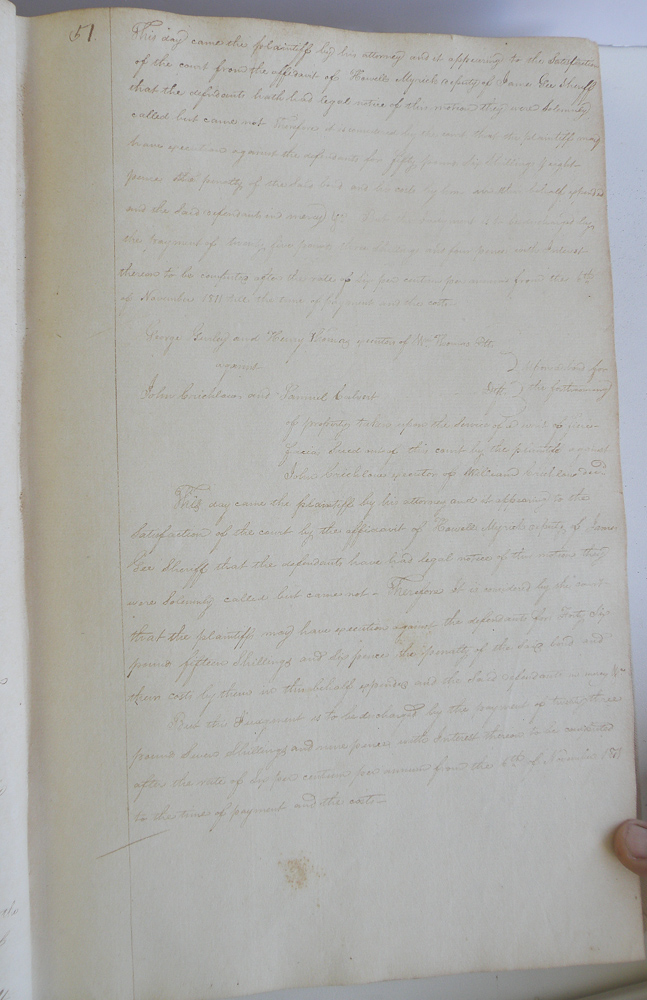 51.
This day came the plaintiff by his attorney and it appearing to the Satisfaction
of the court from the affidavit of Howell Myrick deputy of James Gee Sheriff
that the defendants hath had legal notice of this motion they were Solemnly
called but came not Therefore it is considered by the court that the plaintiff may
have execution against the defendants for fifty pounds Six Shillings & eight
pence the penalty of the said bond and his costs by him in this behalf expended
and the Said defendants in mercy &c But the Judgment is to be discharged by
the payment of twenty five pounds three Shillings and four pence with Interest
thereon to be computed after the rate of Six per centum per annum from the 6th
of November 1811 till the time of payment and the costs
George Gurley and Henry executors of Wm Thomas
against upon a bond for
John Crichlow and Samuel Calvert Defts the forthcoming
of property taken upon the Service of a writ of fieri
facias Sued out of this court by the plaintiffs against
John Crichlow executor of decd
This day came the plaintiff by his attorney and it appearing to the
Satisfaction of the court by the affidavit of Howell Myrick deputy of James
Gee Sheriff that the defendants have had legal notice of this motion they
were Solemnly called but came not – Therefore it is considered by the court
that the plaintiff may have execution against the defendants for Forty Six
pounds fifteen Shillings and Six pence the penalty of the Said bond and
their costs by them in this behalf expended and the Said defendants in mercy &c
But the Judgment is to be discharged by the payment of twenty three
pounds Seven Shillings and nine pence with Interest thereon to be computed
after the rate of Six per centum per annum from the 6th of November 1811
to the time of payment and the costs –